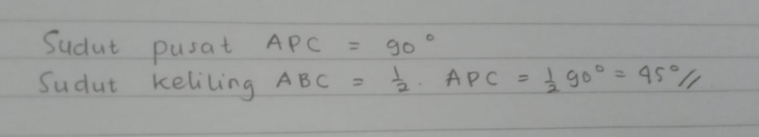 Sudut pusat APC = 90°
Sudut keliling ABC = 1/2 . APC = 1/2 90° = 45°//